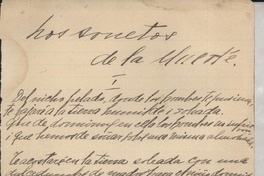 Los sonetos
de la Muerte.
I
Del nicho helado, donde los hombres te pusieron,
te bajaré a la tierra humilde y soleada.
que he de dormirme en ella los hombres no supieron
i que hemos de soñar sobre una misma almohada.
Te acostaré en la tierra soleada con una